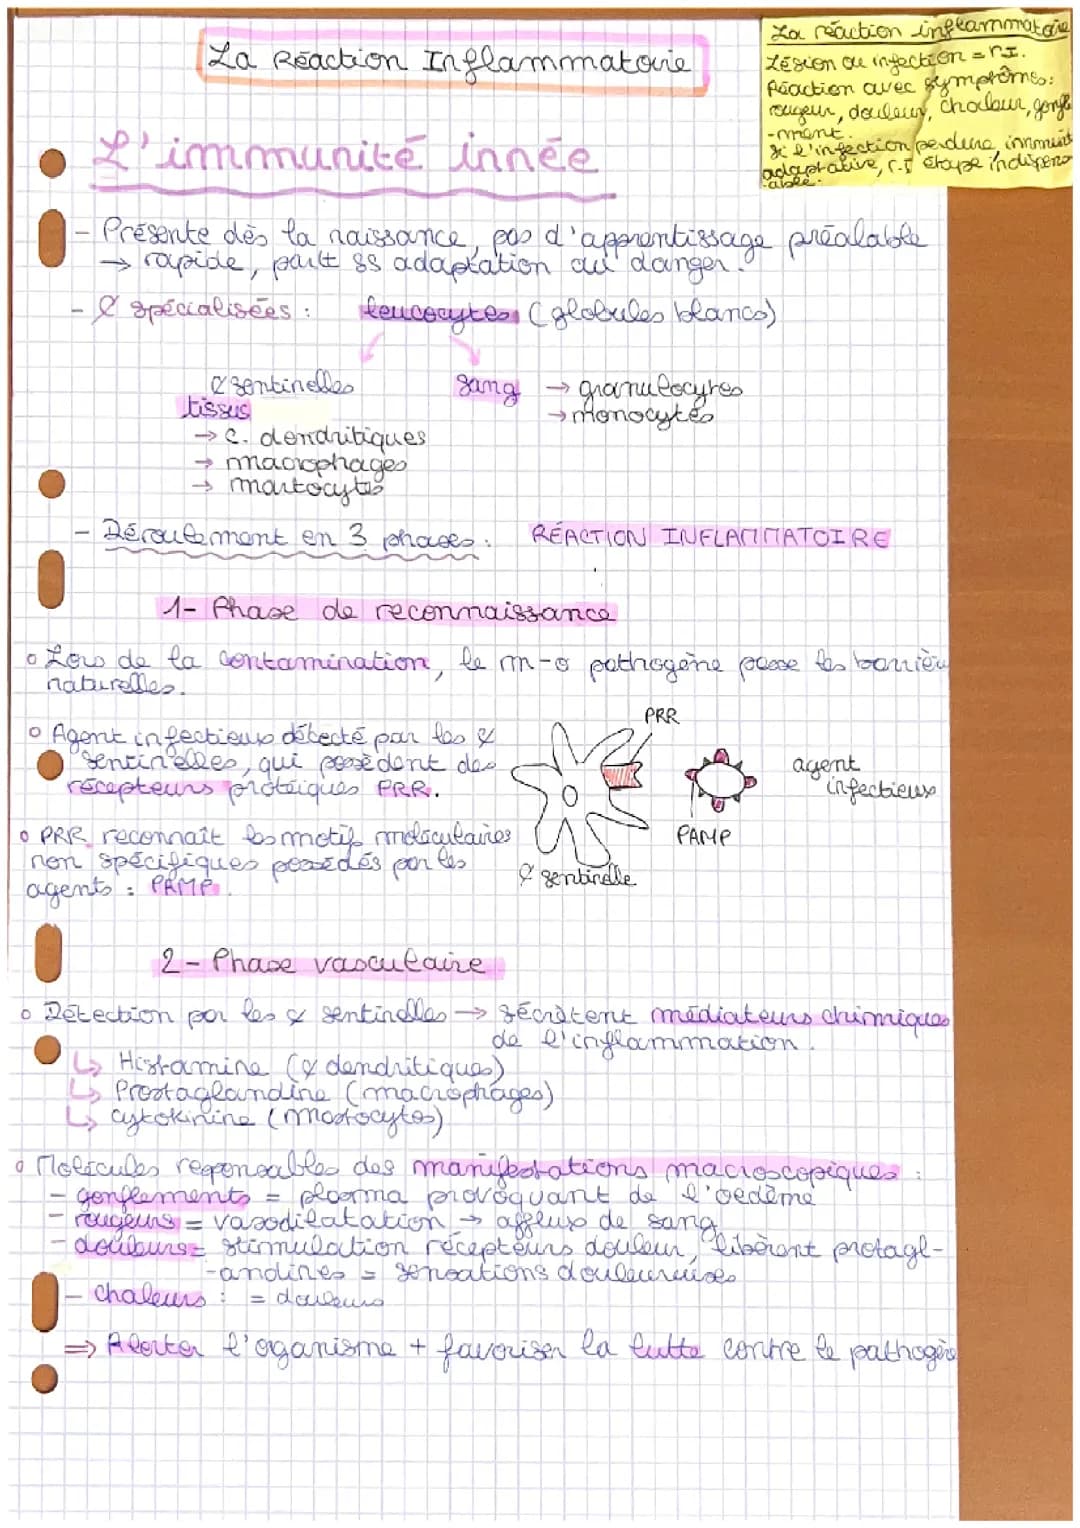 La Réaction Inflammatoire
La réaction inflammatoire
Lésion ou infection = r.I.
Réaction avec symptômes:
rougeur, douleur, chaleur, gonfle
-ment.
Si l'infection perdure immunit
adaptative, r.I étape indispens
-able.
L'immunité innée
- Présente dès la naissance, pas d'apprentissage préalable
→ rapide, part ss adaptation au danger.
- ₵ spécialisées : leucocytes (globules blancs)
₵ sentinelles
tissus
→ c. dendritiques
→ macrophages
→ mastocytes
sang → granulocytes
→ monocytes
- Déroulement en 3 phases : RÉACTION INFLAMMATOIRE
1- Phase de reconnaissance
o Lors de la contamination, le m-o pathogène passe les barrièr
naturelles.
o Agent infectieux détecté par les ₵
sentinelles, qui possèdent des
récepteurs protéiques PRR.
o PRR reconnaît les motifs moléculaires
non spécifiques possédés par les
agents : PAMP.
PRR
agent
infectieux
PAMP
₵ sentinelle
2- Phase vasculaire
o Détection par les ₵ sentinelles → sécrètent médiateurs chimiques
de l'inflammation.
↳ Histamine (₵ dendritiques)
↳ Prostaglandine (macrophages)
↳ cytokinine (mastocytes)
o Molécules responsables des manifestations macroscopiques :
- gonflements = plasma provoquant de l'oedème
- rougeurs = vasodilatation → afflux de sang
- douleurs = stimulation récepteurs douleur, libèrent protagl-
-andines = sensations douleureuses
- chaleurs : = douleurs
⇒ Alerter l'oganisme + favoriser la lutte contre le pathogène